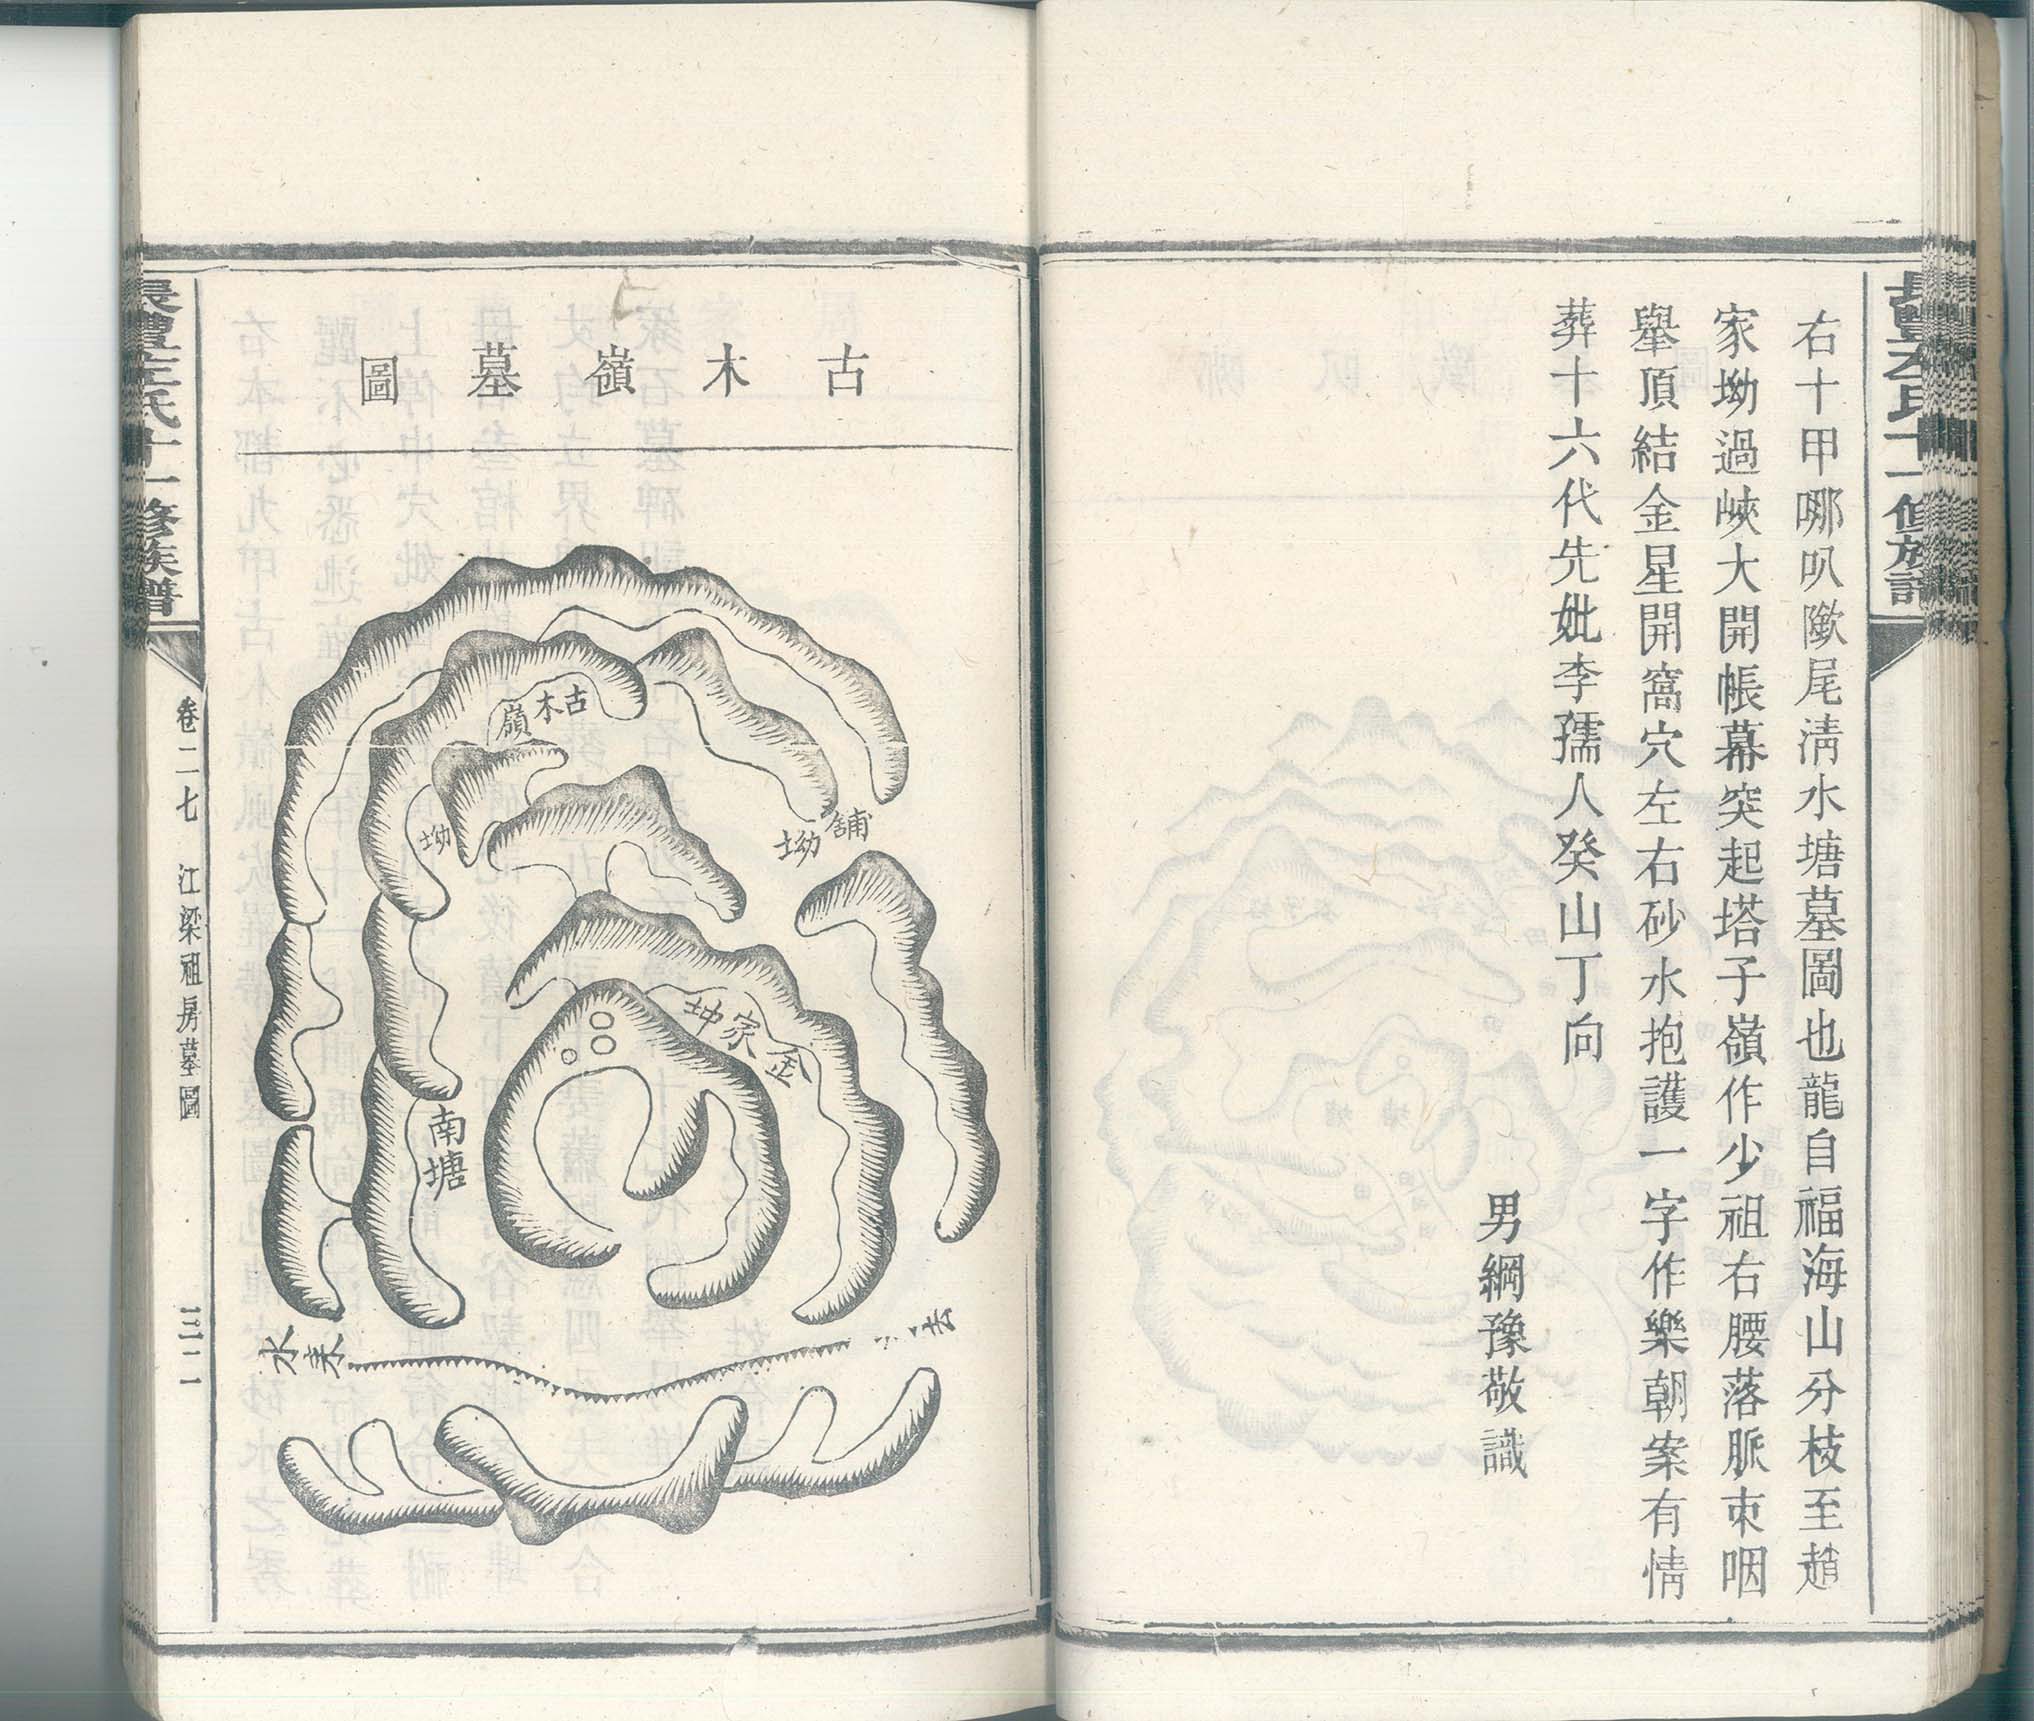 右十甲哪叭隞尾清水塘墓圖也龍自福海山分枝至趙
家坳過峽大開帳幕突起塔子嶺作少祖右腰落脈束咽
舉頂結金星開窩穴左右砂水抱護一字作樂朝案有情
葬十六代先妣李孺人癸山丁向
男綱豫敬識
古木嶺墓圖
古木嶺
坳
舖坳
金家坤
南塘
水來
去
長豐左氏十一修族譜
卷二七 江梁祖房墓圖